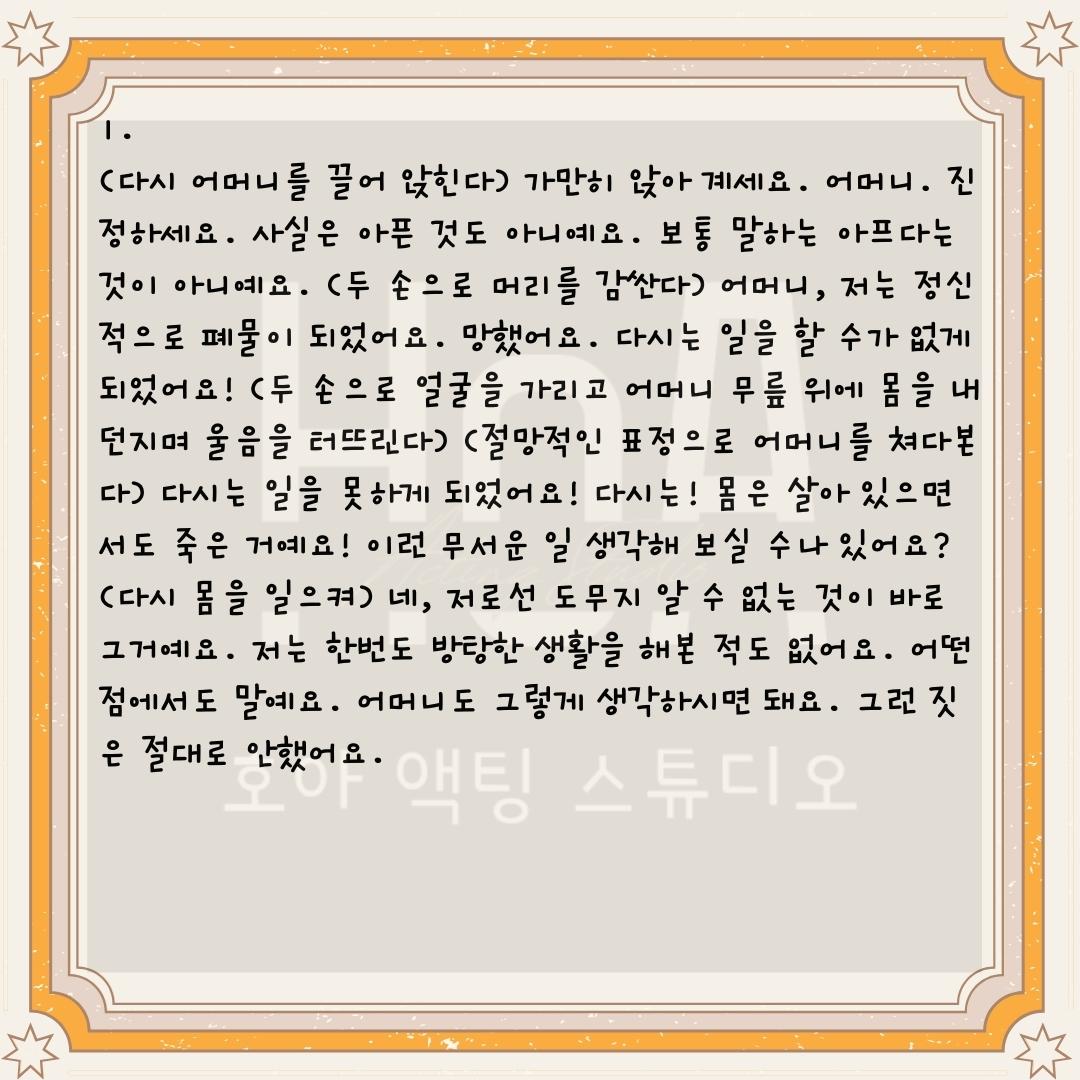 1.
(다시 어머니를 끌어 앉힌다) 가만히 앉아 계세요. 어머니. 진
정하세요. 사실은 아픈 것도 아니예요. 보통 말하는 아프다는
것이 아니예요. (두 손으로 머리를 감싼다) 어머니, 저는 정신
적으로 폐물이 되었어요. 망했어요. 다시는 일을 할 수가 없게
되었어요! (두 손으로 얼굴을 가리고 어머니 무릎 위에 몸을 내
던지며 울음을 터뜨린다) (절망적인 표정으로 어머니를 쳐다본
다) 다시는 일을 못하게 되었어요! 다시는! 몸은 살아 있으면
서도 죽은 거예요! 이런 무서운 일 생각해 보실 수나 있어요?
(다시 몸을 일으켜) 네, 저로선 도무지 알 수 없는 것이 바로
그거예요. 저는 한번도 방탕한 생활을 해본 적도 없어요. 어떤
점에서도 말예요. 어머니도 그렇게 생각하시면 돼요. 그런 짓
은 절대로 안했어요.
HnA
Acting Studio
호아 액팅 스튜디오